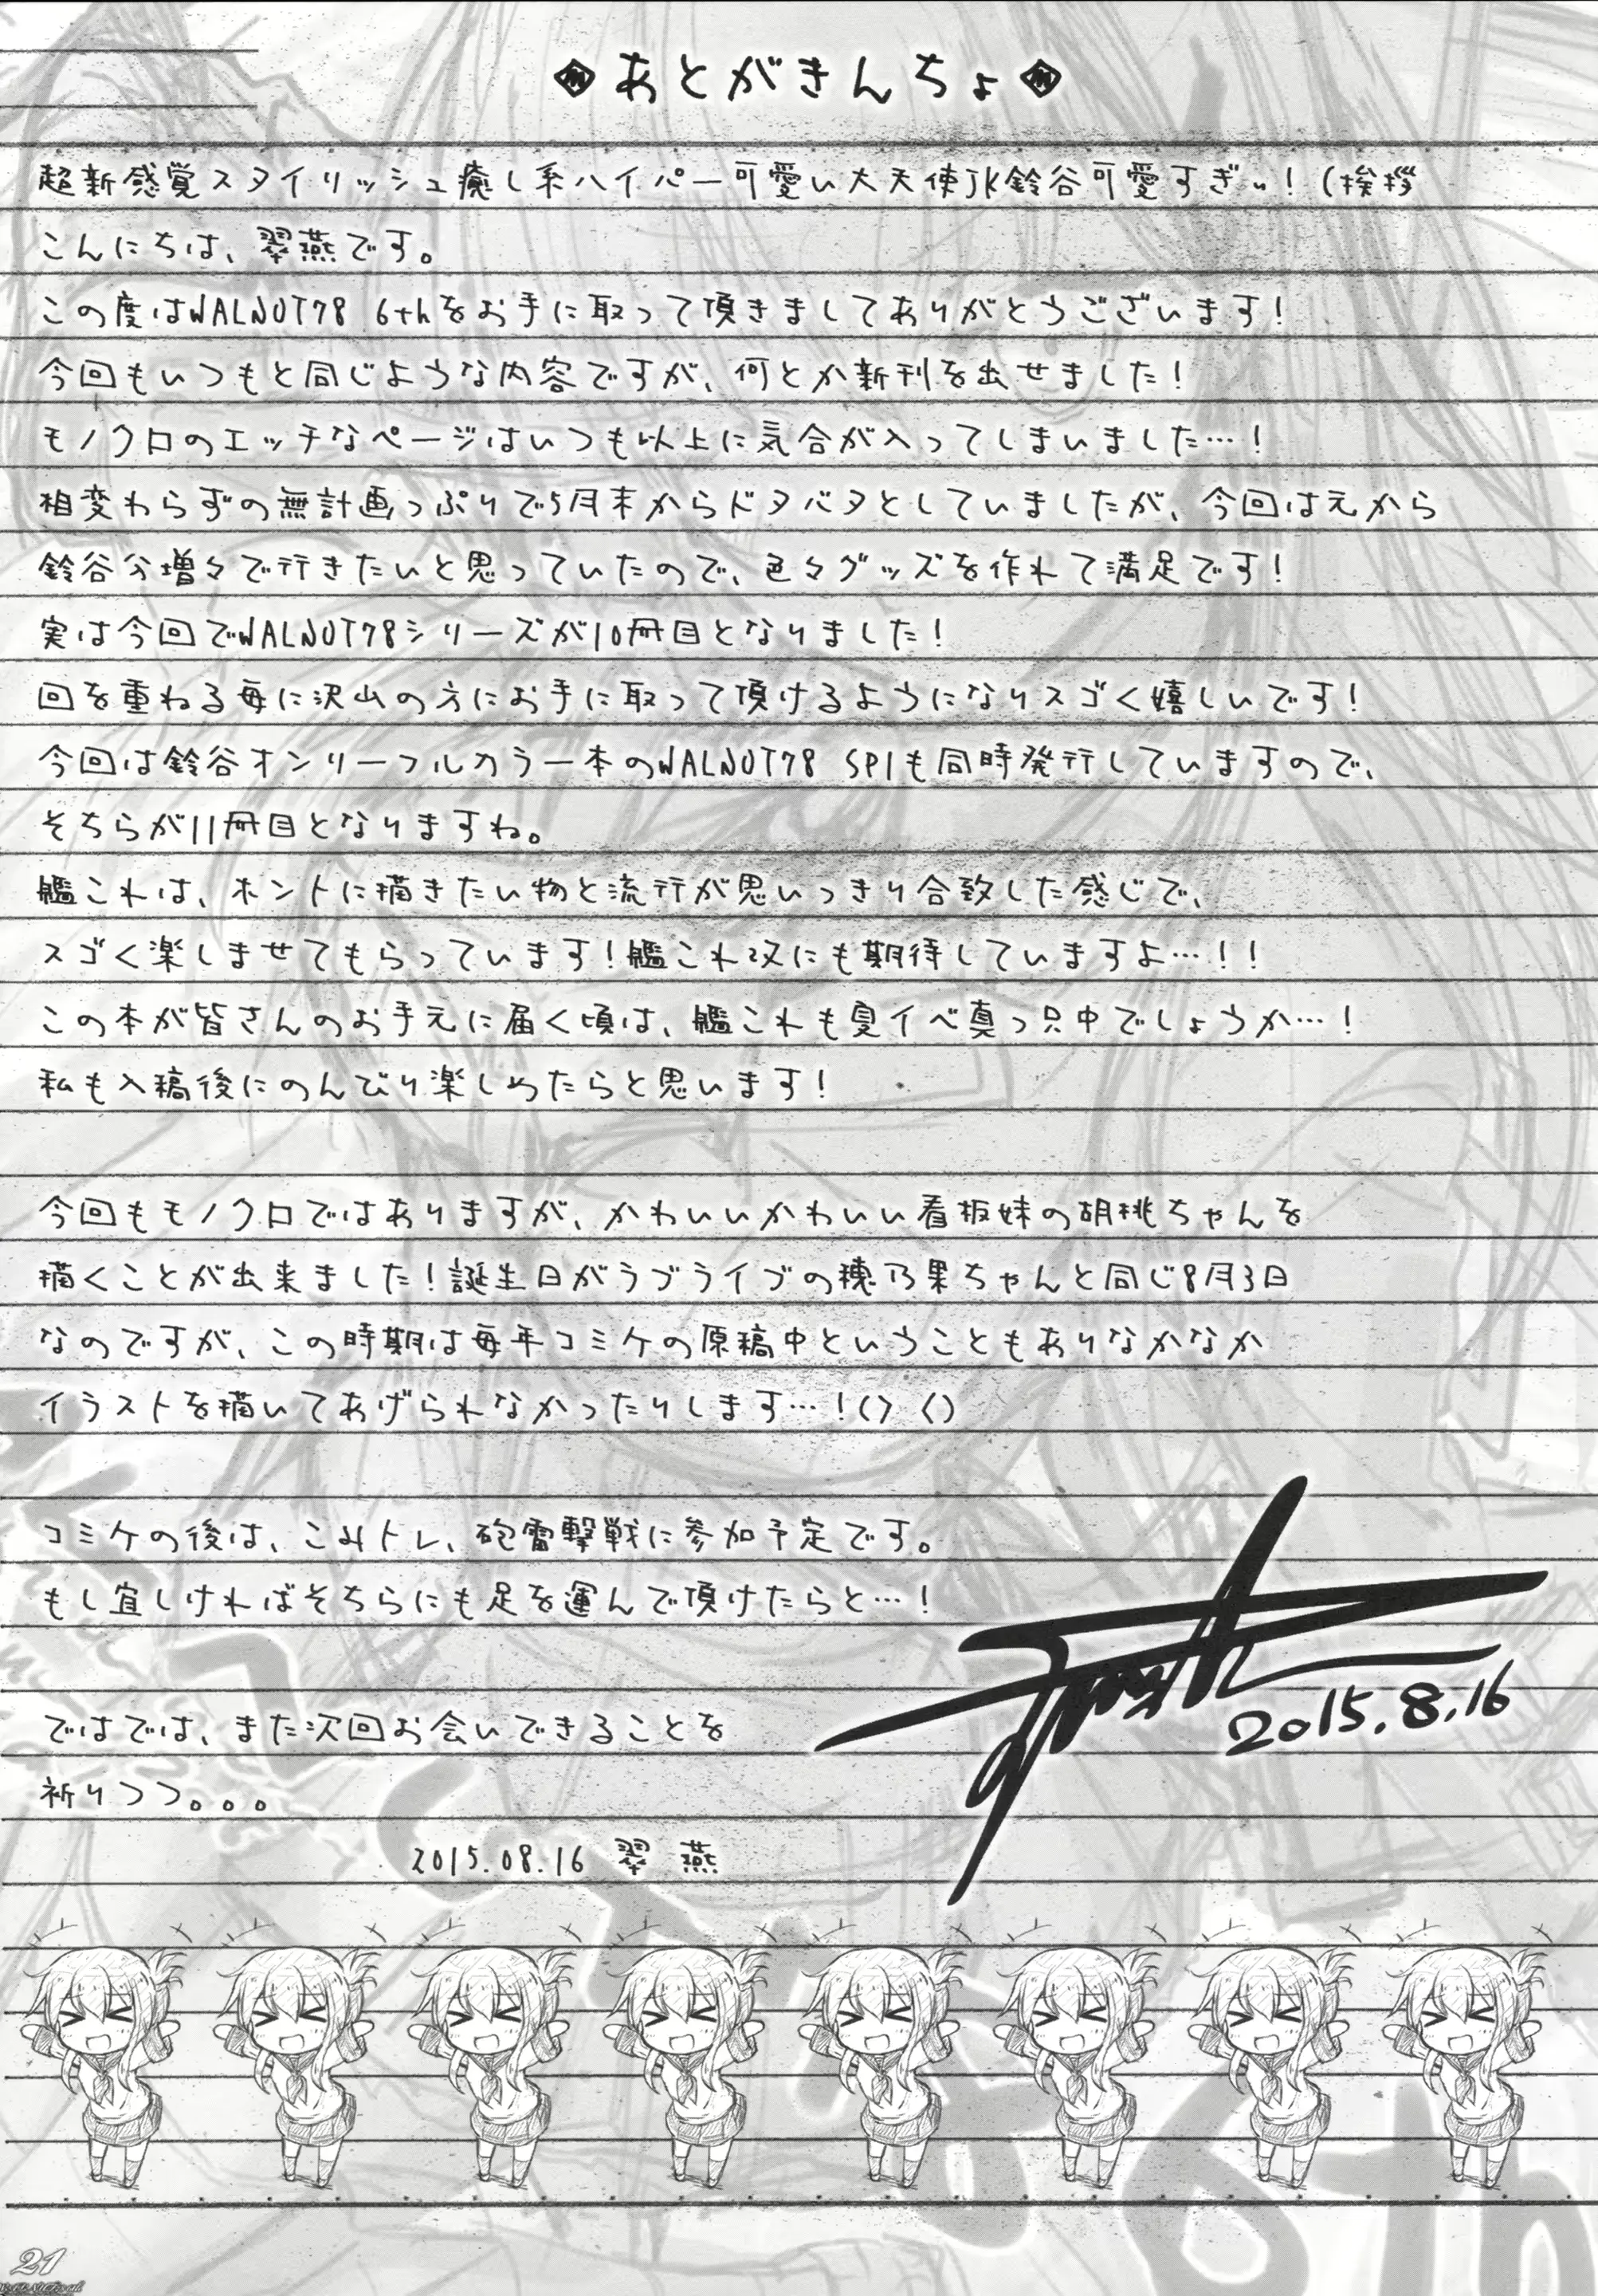 あとがきんちょ
超新感覚スタイリッシュ癒し系ハイパー可愛い大天使JK鈴谷可愛すぎぃ!(挨拶
こんにちは、翠燕です。
この度はWALNUT78 6thをお手に取って頂きましてありがとうございます!
今回もいつもと同じような内容ですが、何とか新刊を出せました!
モノクロのエッチなページはいつも以上に気合が入ってしまいました…!
相変わらずの無計画っぷりで5月末からドタバタとしていましたが、今回は元から
鈴谷分増々で行きたいと思っていたので、色々グッズを作れて満足です!
実は今回でWALNUT78シリーズが10冊目となりました!
回を重ねる毎に沢山の方にお手に取って頂けるようになりスゴく嬉しいです!
今回は鈴谷オンリーフルカラー本のWALNUT78 SP1も同時発行していますので、
そちらが11冊目となりますね。
艦これは、ホントに描きたい物と流行が思いっきり合致した感じで、
スゴく楽しませてもらっています!艦これ改にも期待していますよ…!!
この本が皆さんのお手元に届く頃は、艦これも夏イベ真っ只中でしょうか…!
私も入稿後にのんびり楽しめたらと思います!
今回もモノクロではありますが、かわいいかわいい看板妹の胡桃ちゃんを
描くことが出来ました!誕生日がラブライブの穂乃果ちゃんと同じ8月3日
なのですが、この時期は毎年コミケの原稿中ということもありなかなか
イラストを描いてあげられなかったりします…!() ()
コミケの後は、こみトレ、砲雷撃戦に参加予定です。
もし宜しければそちらにも足を運んで頂けたらと…!
2015.8.16
ではでは、また次回お会いできることを
祈りつつ。。。
2015.08.16 翠燕
6th
21